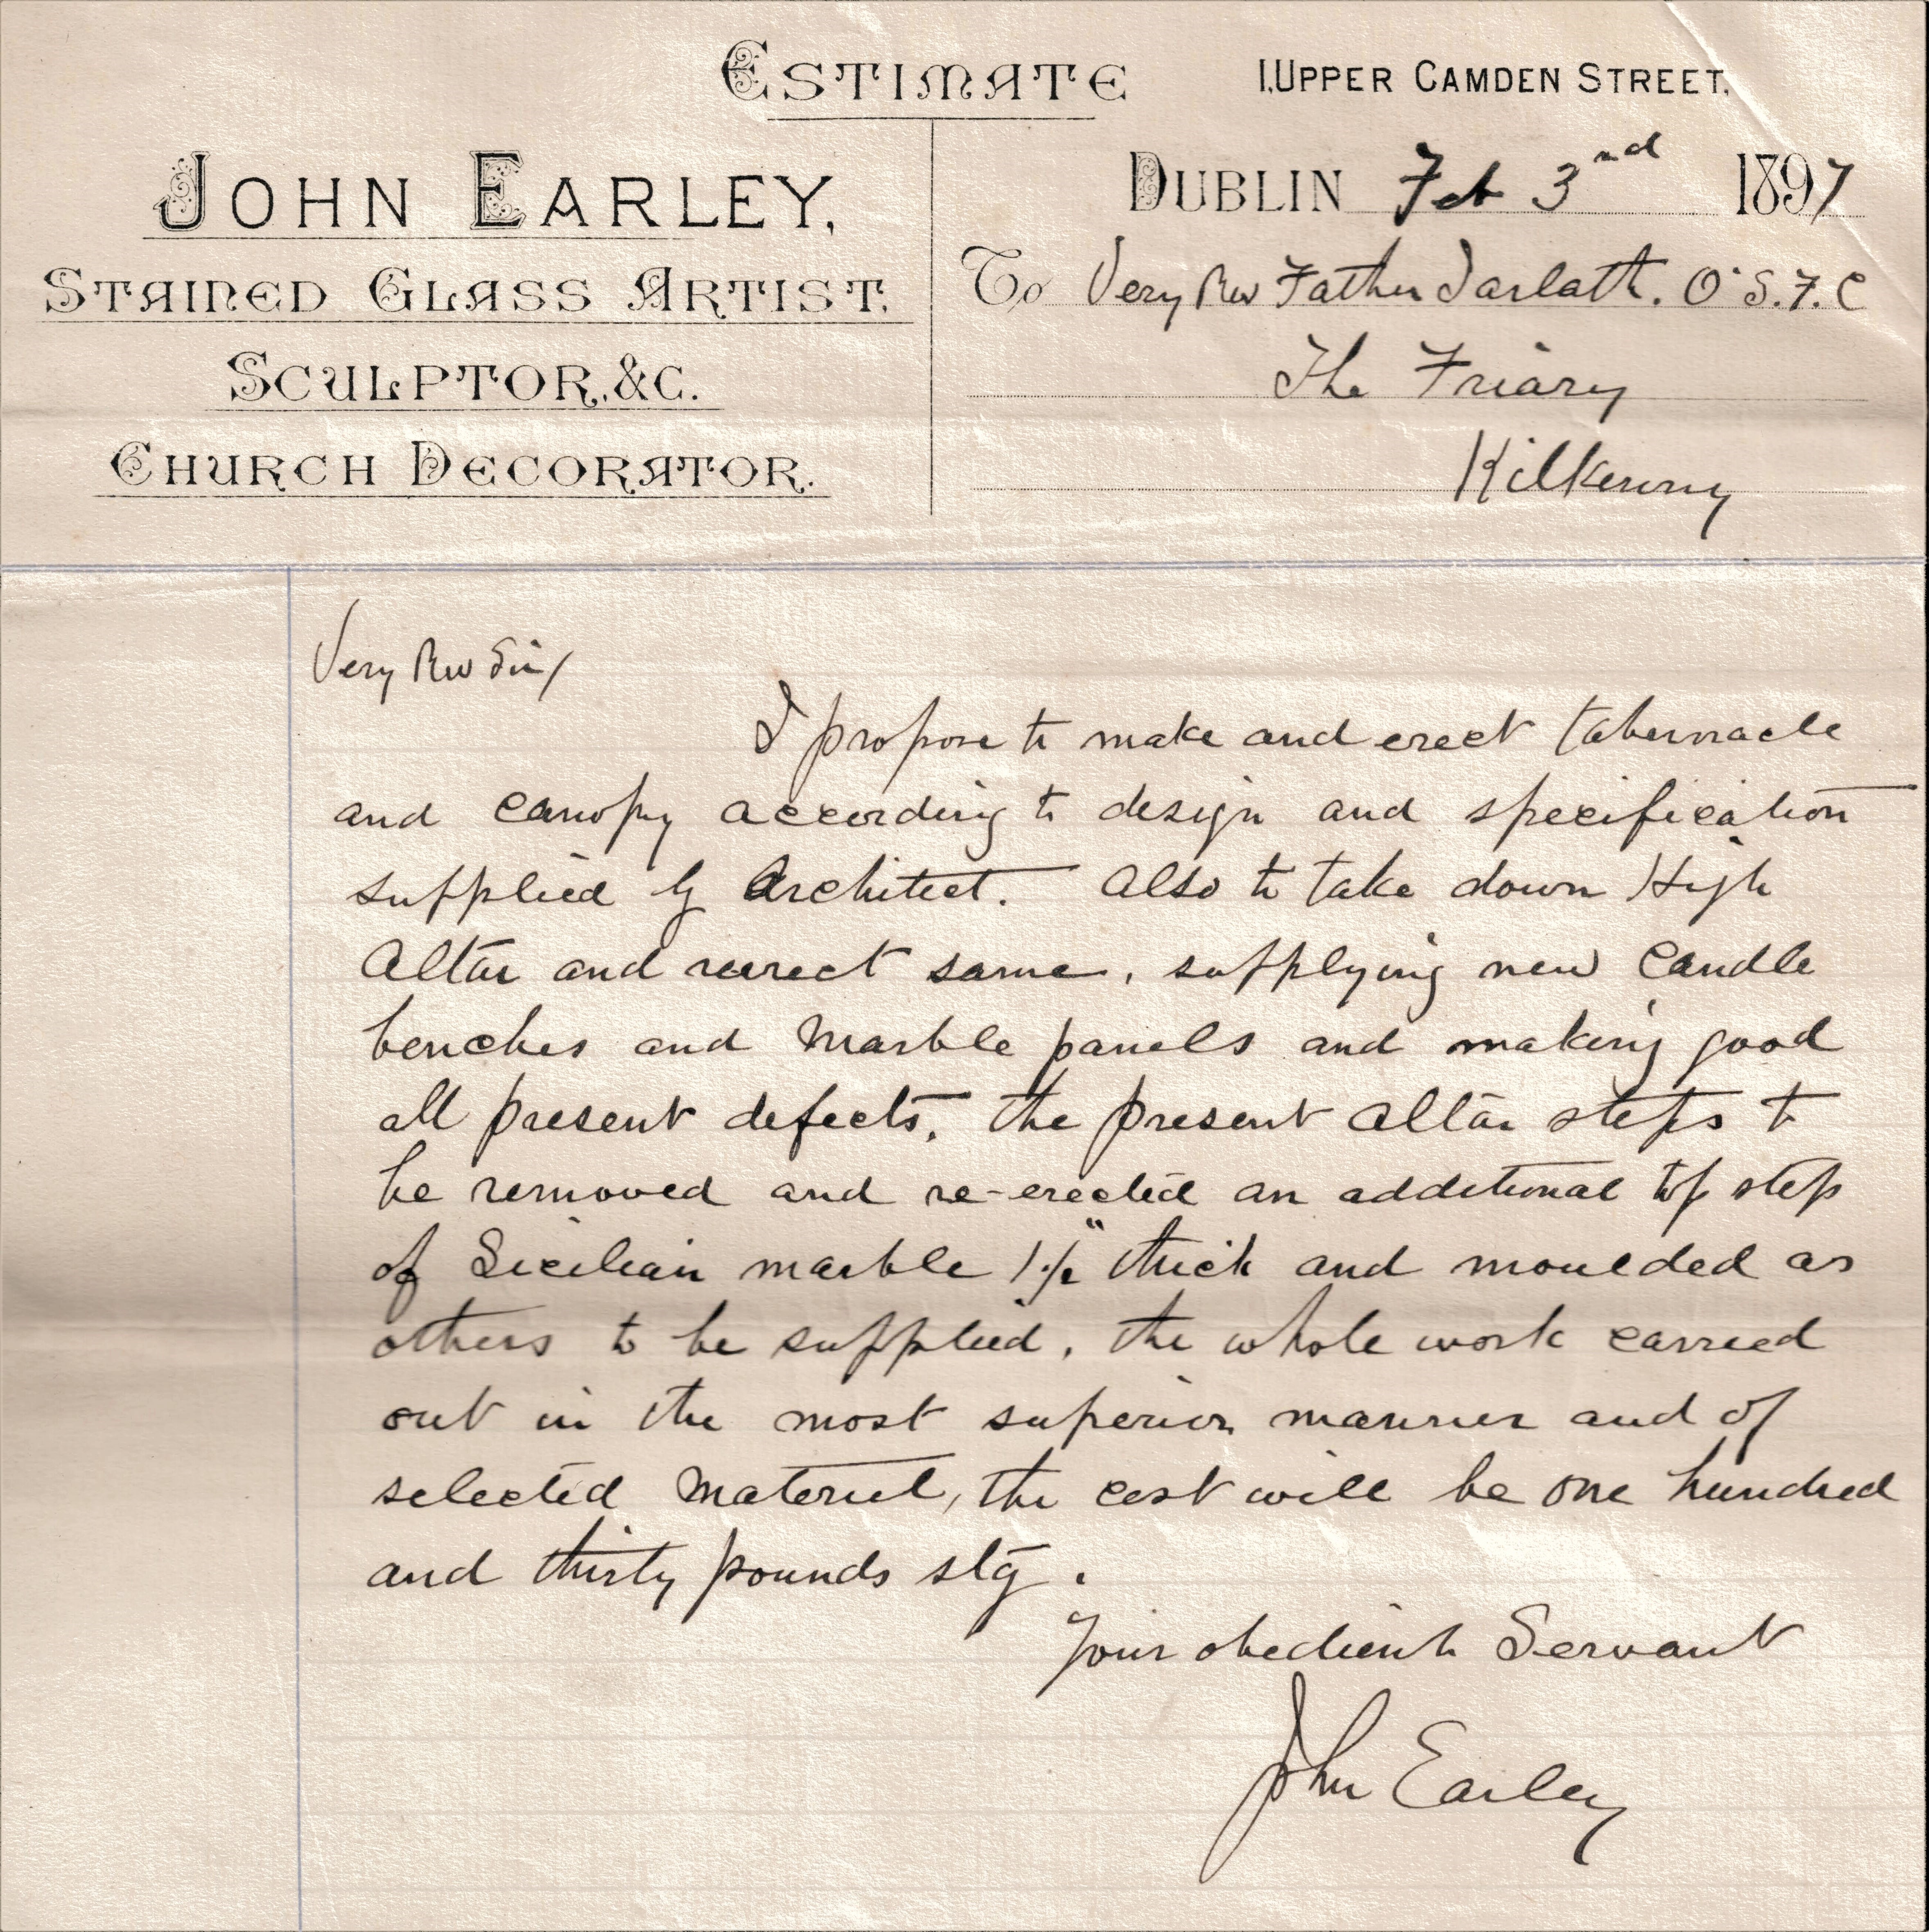 ESTIMATE
1, UPPER CAMDEN STREET,
JOHN EARLEY,
STAINED GLASS ARTIST,
SCULPTOR, &C.
CHURCH DECORATOR.
DUBLIN Feb 3nd 1897
To Very Rev Father Jarlath. O.S.F.C
The Friary
Kilkenny
Very Rev Sir/
I propose to make and erect tabernacle
and canopy according to design and specification
supplied by Architect. Also to take down High
Altar and reerect same, supplying new candle
benches and Marble panels and making good
all present defects, the present Altar steps to
be removed and re-erected an additional top step
of Sicilian marble 1½" thick and moulded as
others to be supplied, the whole work carried
out in the most superior manner and of
selected material, the cost will be one hundred
and thirty pounds stg.
Your obedient Servant
John Earley